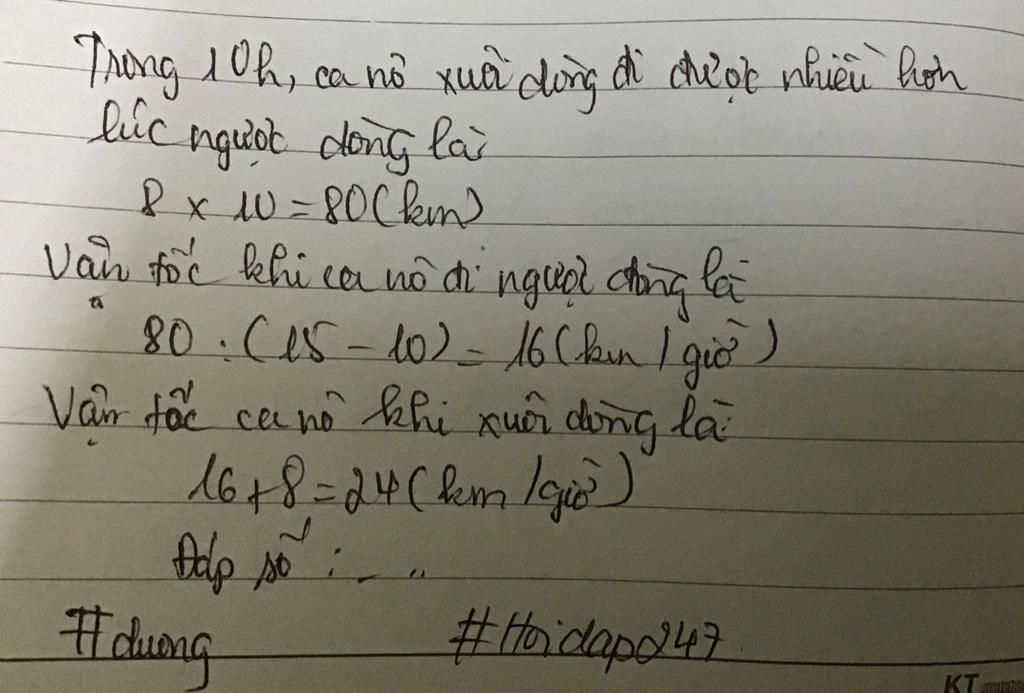 Trong 10h, ca nô xuôi dòng đi được nhiều hơn
lúc ngược dòng là:
8 x 10 = 80 (km)
Vận tốc khi ca nô đi ngược dòng là
80 : (15 - 10) = 16 (km / giờ)
Vận tốc ca nô khi xuôi dòng là:
16 + 8 = 24 (km / giờ)
Đáp số : - ..
#duong #Hoidap247
KT